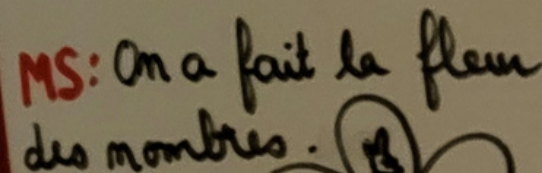 MS: On a fait la fleur
des nombres.